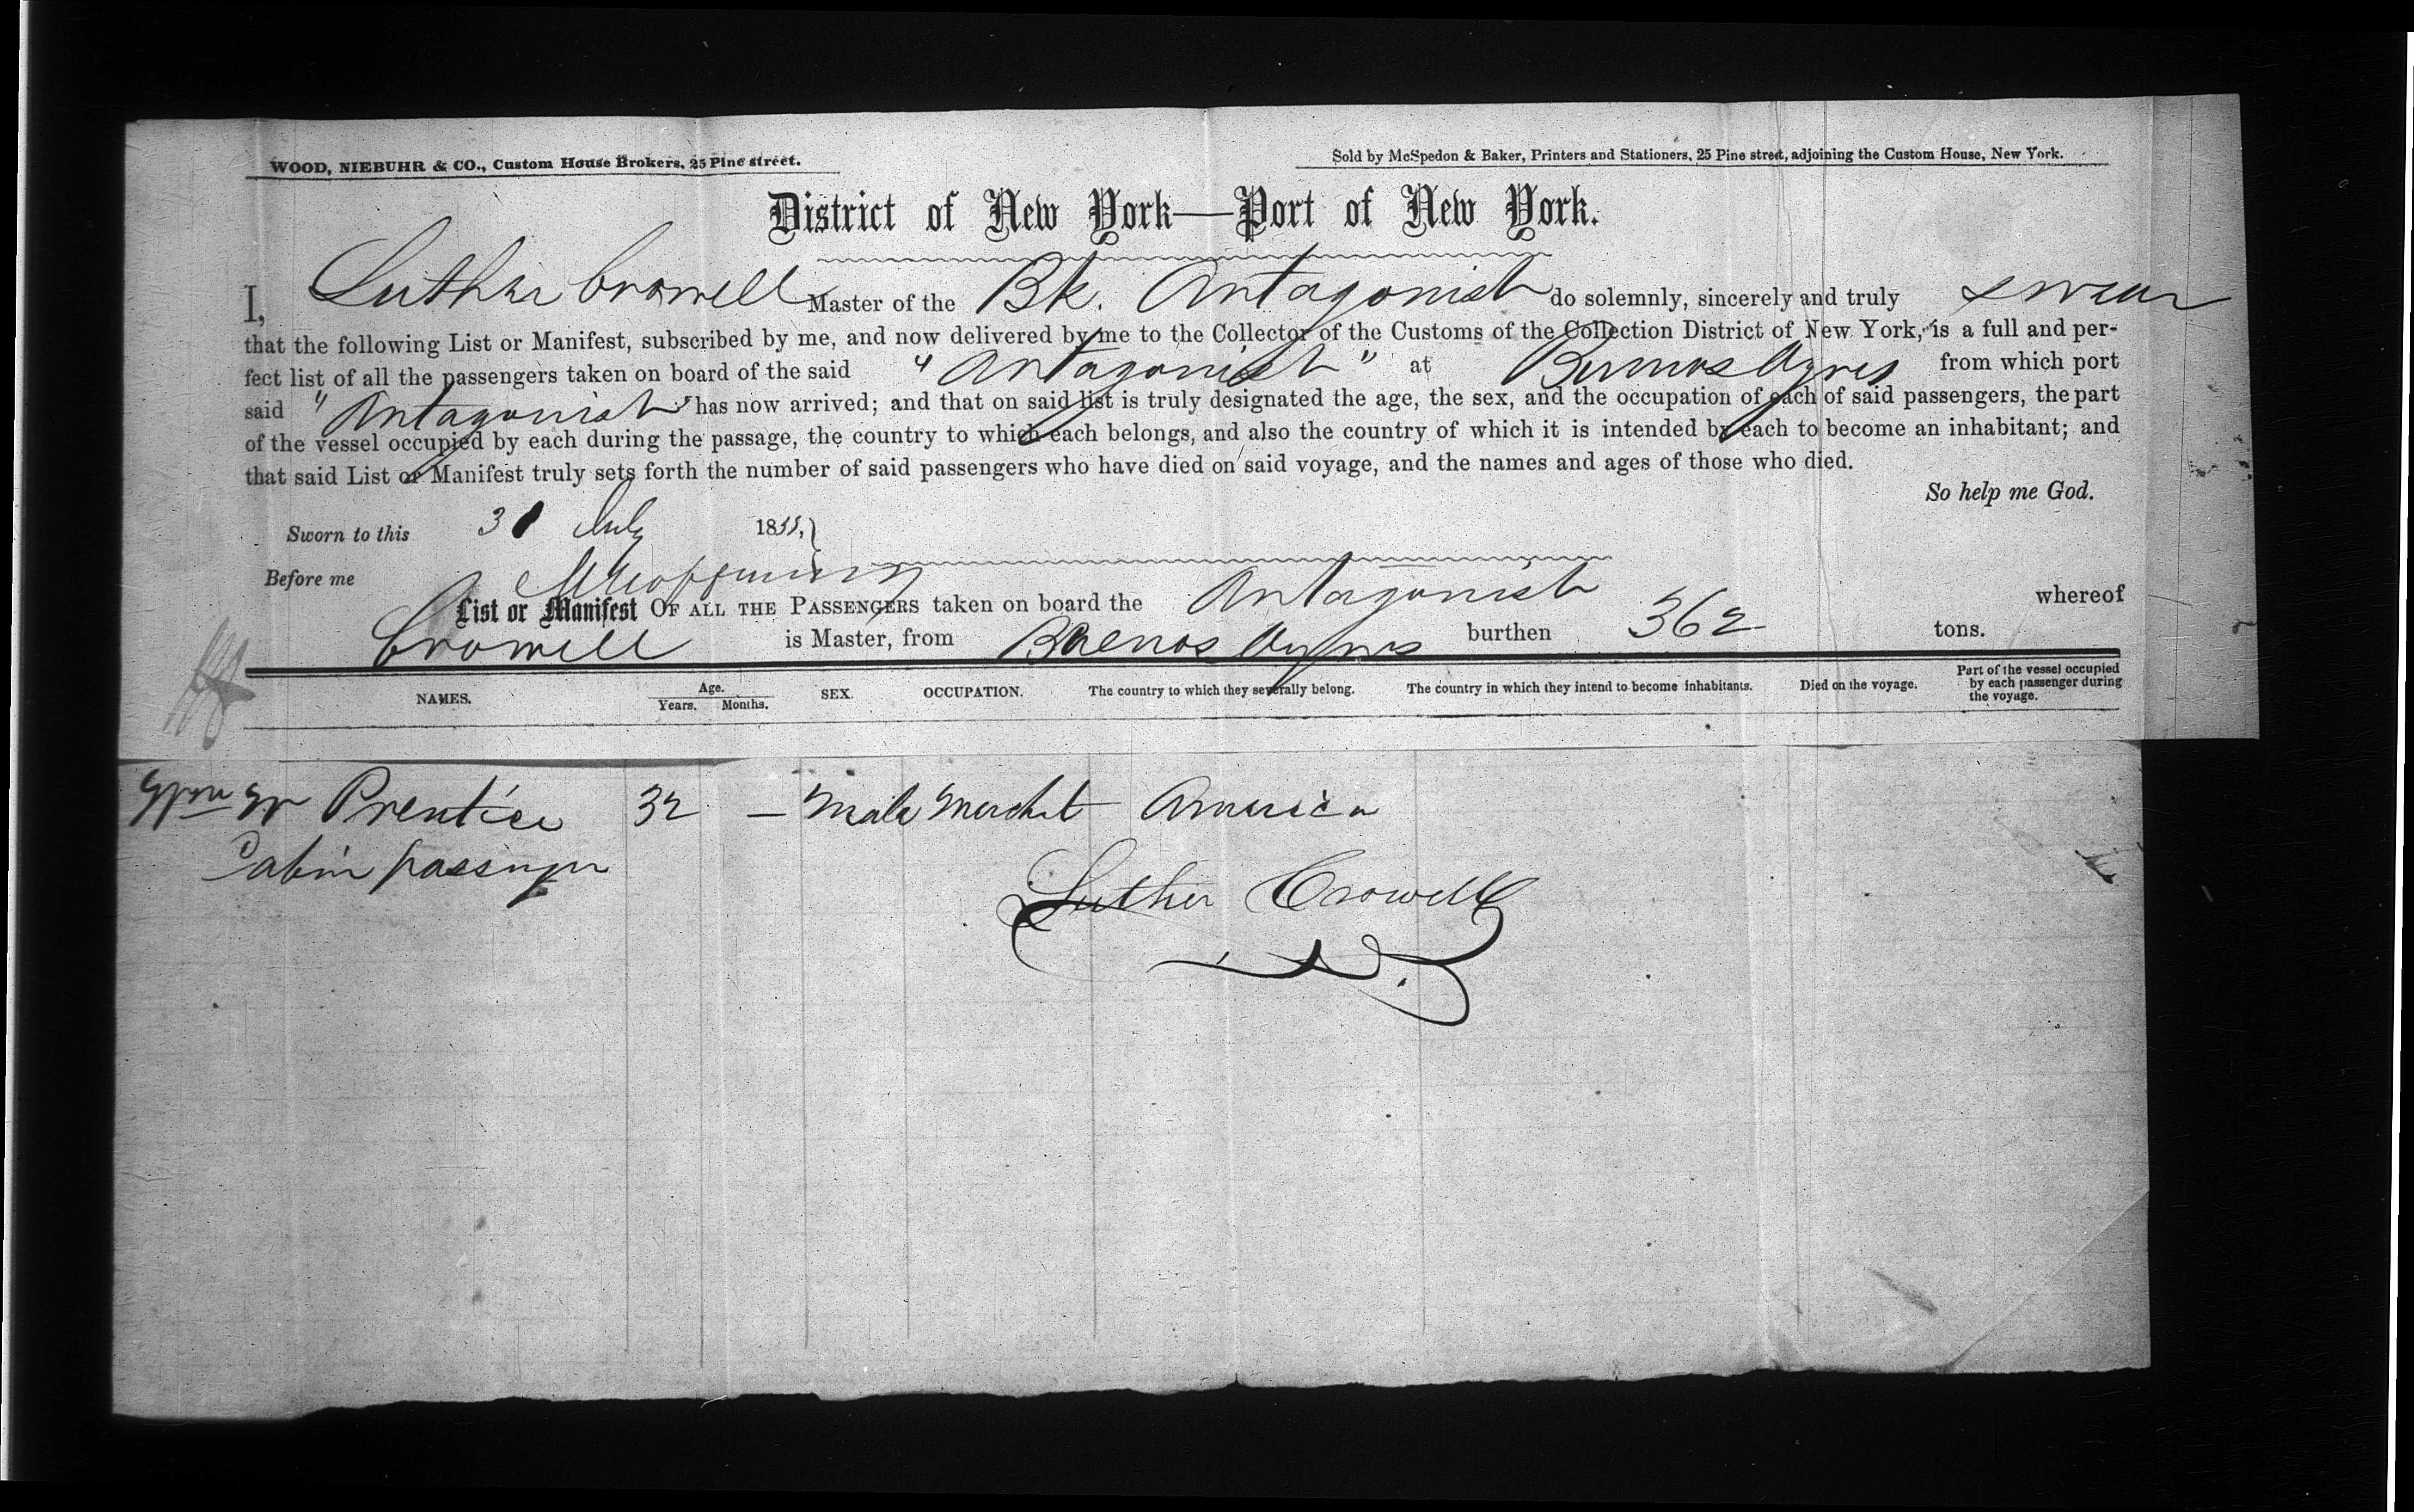 WOOD, NIEBUHR & CO., Custom House Brokers, 25 Pine street.
Sold by McSpedon & Baker, Printers and Stationers, 25 Pine street, adjoining the Custom House, New York.
District of New York—Port of New York.
I, Luther Crowell Master of the Bk. Antagonist do solemnly, sincerely and truly swear
that the following List or Manifest, subscribed by me, and now delivered by me to the Collector of the Customs of the Collection District of New York, is a full and per-
fect list of all the passengers taken on board of the said "Antagonist" at Buenos Ayres from which port
said "Antagonist" has now arrived; and that on said list is truly designated the age, the sex, and the occupation of each of said passengers, the part
of the vessel occupied by each during the passage, the country to which each belongs, and also the country of which it is intended by each to become an inhabitant; and
that said List or Manifest truly sets forth the number of said passengers who have died on said voyage, and the names and ages of those who died.
So help me God.
Sworn to this 31 July 1855,
Before me
List or Manifest OF ALL THE PASSENGERS taken on board the Antagonist whereof
Crowell is Master, from Buenos Ayres burthen 362 tons.
NAMES. Age. Years. Months. SEX. OCCUPATION. The country to which they severally belong. The country in which they intend to become inhabitants. Died on the voyage. Part of the vessel occupied by each passenger during the voyage.
Prentice 32 — Male Mercht America
Cabin passenger
Luther Crowell